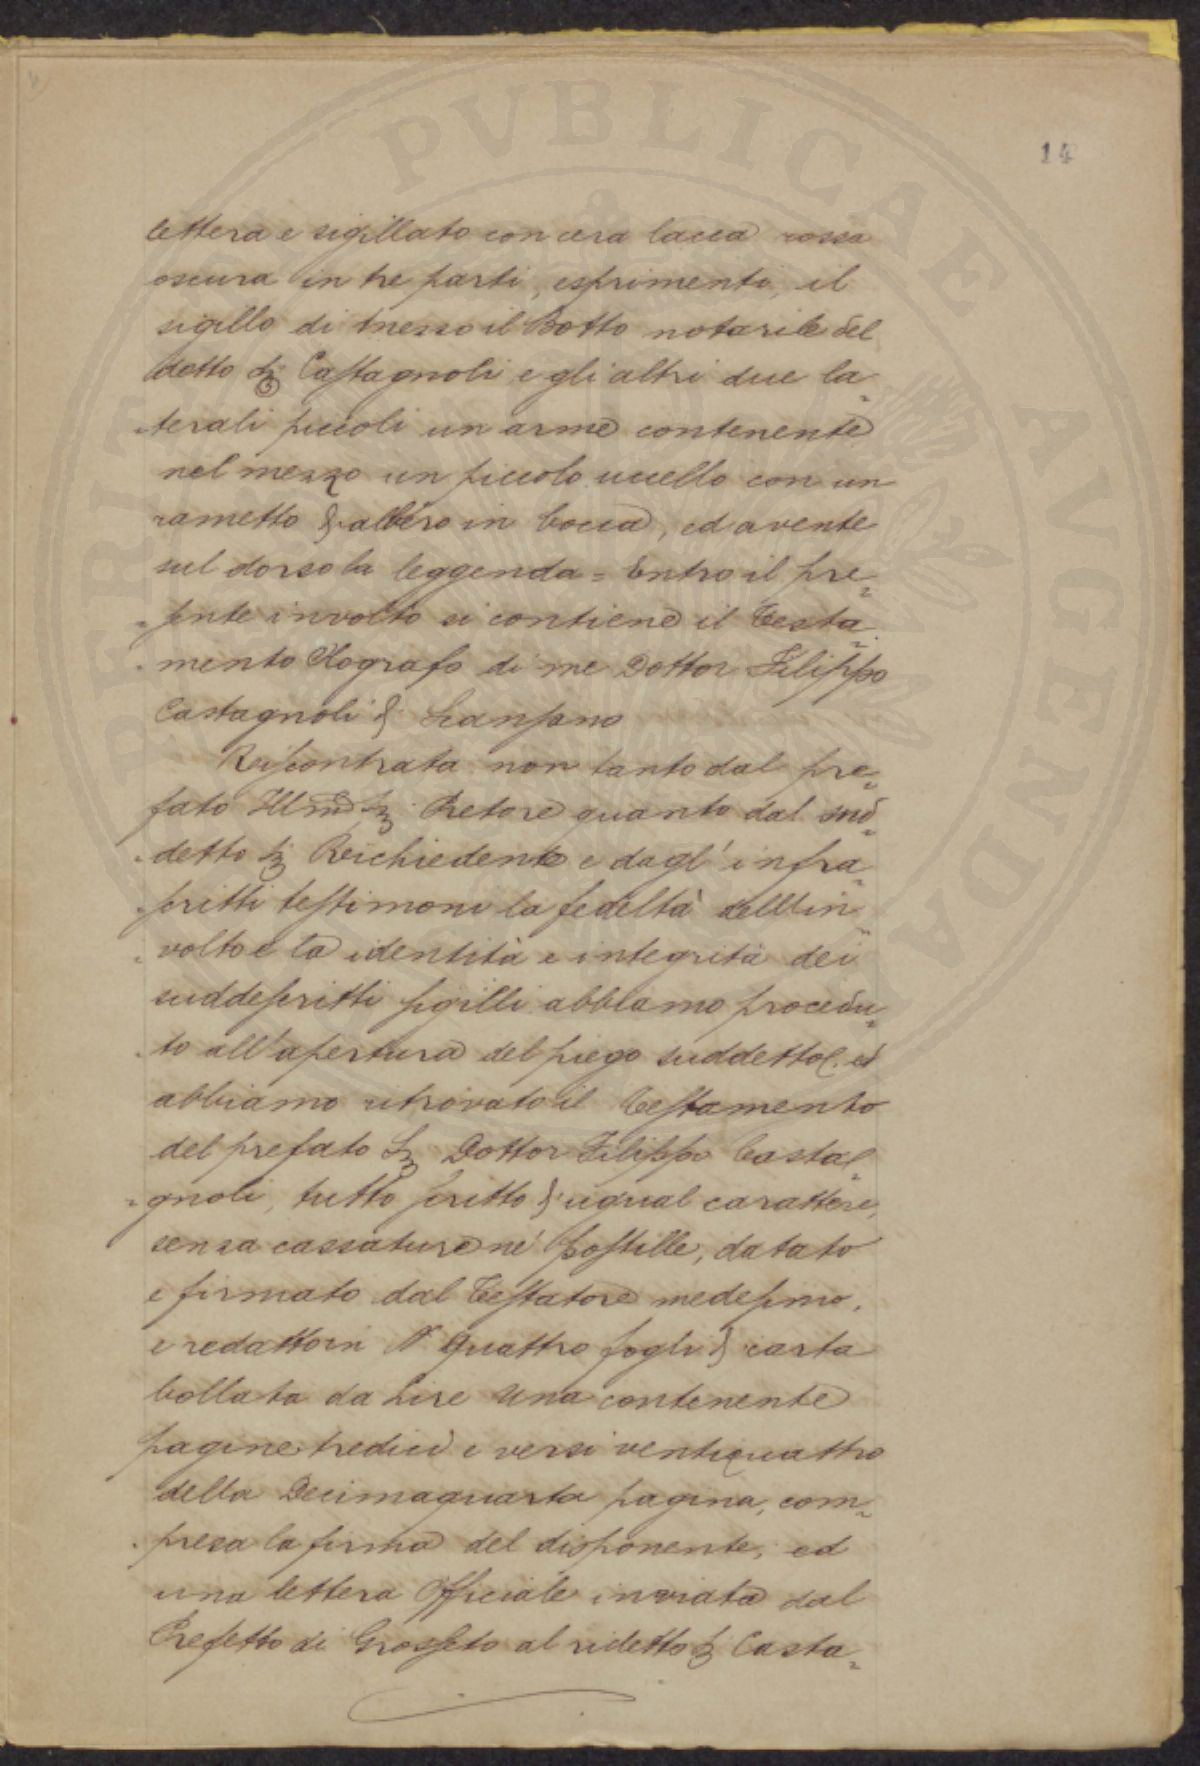 14
lettera e sigillato con cera lacca rossa
oscura in tre parti, esprimenti, il
sigillo di mezzo il Botto notarile del
detto Sig Castagnoli e gli altri due la=
=terali piccoli un arme contenente
nel mezzo un piccolo uccello con un
rametto d'albero in bocca, ed avente
sul dorso la leggenda = Entro il pre=
=sente involto si contiene il Testa=
=mento Olografo di me Dottor Filippo
Castagnoli di Scansano
Riscontrata non tanto dal pre=
fato Illmo Sig Pretore quanto dal sud=
=detto Sig Richiedente e dagl'infra=
=scritti testimoni la fedeltà dell'in=
=volto e la identità e integrità dei
suddescritti sigilli abbiamo procedu=
=to all'apertura del piego suddetto, ed
abbiamo ritrovato il Testamento
del prefato Sig Dottor Filippo Casta=
=gnoli, tutto scritto di ugual carattere,
senza cassature né postille, datato
e firmato dal Testatore medesimo,
e redatto in N. quattro fogli di carta
bollata da Lire Una contenente
pagine tredici e versi ventiquattro
della Decimaquarta pagina, com=
=presa la firma del disponente, ed
una lettera Officiale inviata dal
Prefetto di Grosseto al ridetto Sig Casta=
PVBLICAE AVGENDA